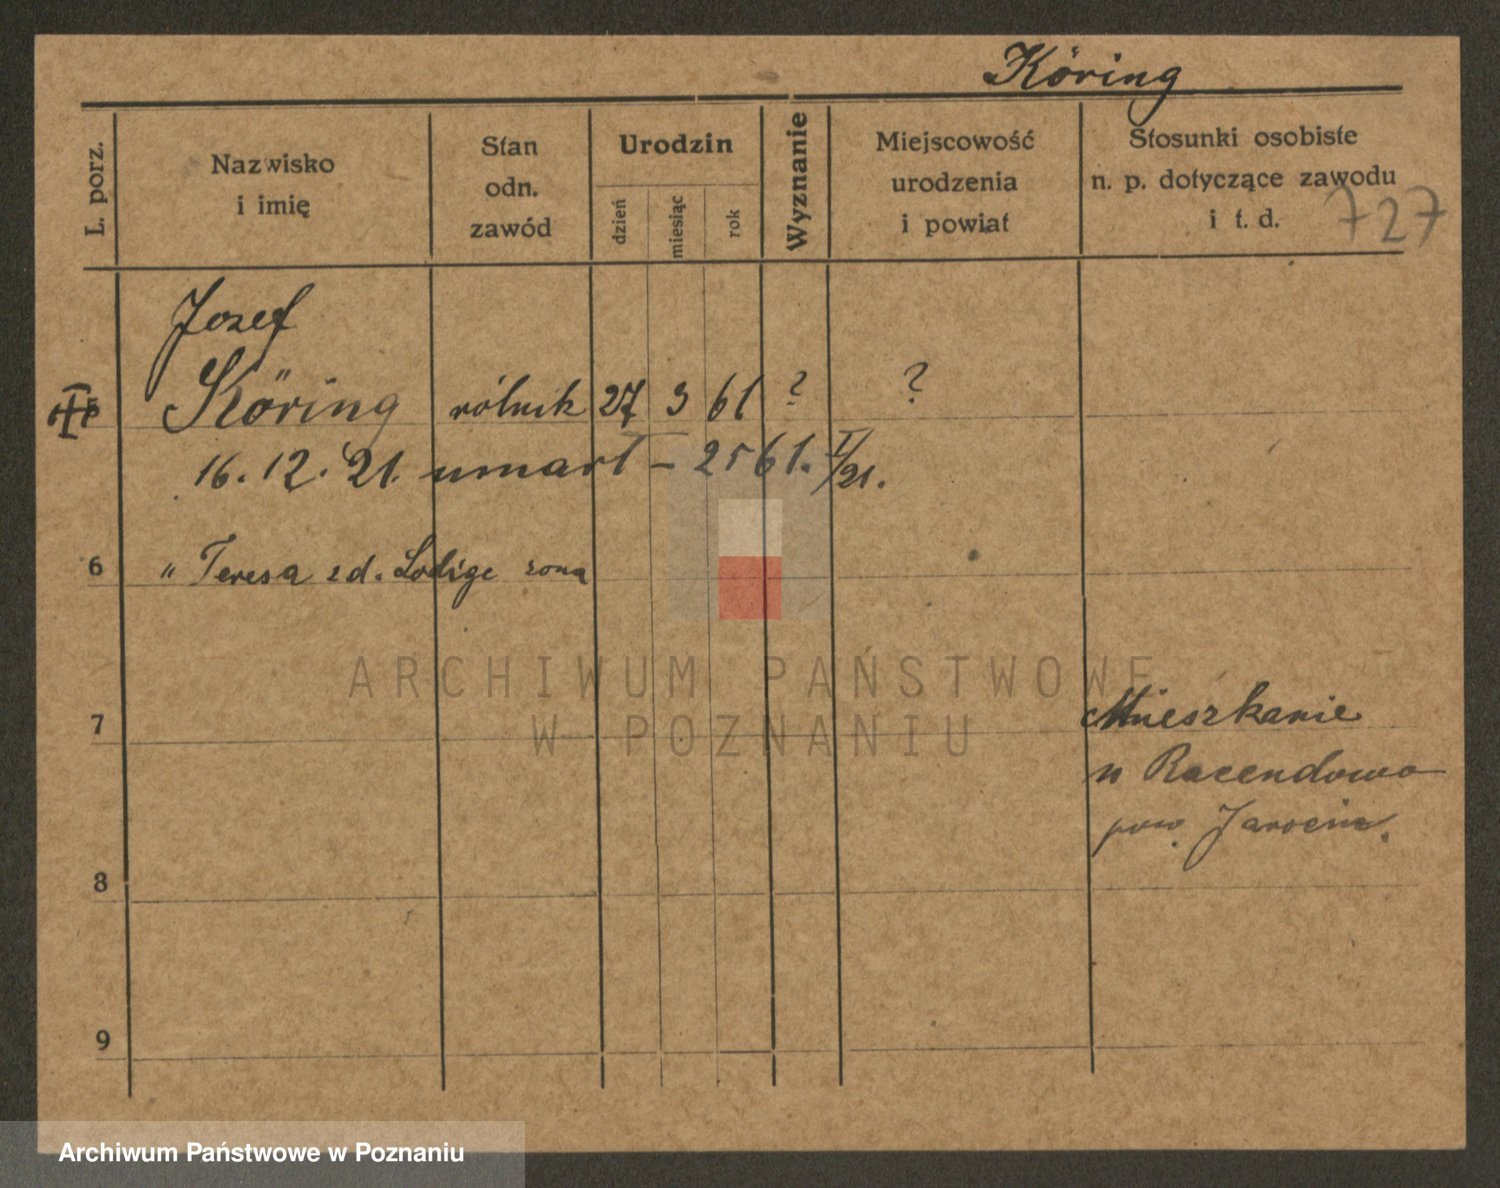 Köring
L. porz.
Nazwisko
i imię
Stan
odn.
zawód
Urodzin
dzień
miesiąc
rok
Wyznanie
Miejscowość
urodzenia
i powiat
Stosunki osobiste
n. p. dotyczące zawodu
i t. d.
727
Jozef
Köring rólnik 27 3 61 ? ?
5
16. 12. 21. umarł – 2561. I/21.
6 " Teresa zd. Lodige żona
7
Mieszkanie
n Racendowo
pow. Jarocin.
8
9
ARCHIWUM PAŃSTWOWE
W POZNANIU
Archiwum Państwowe w Poznaniu